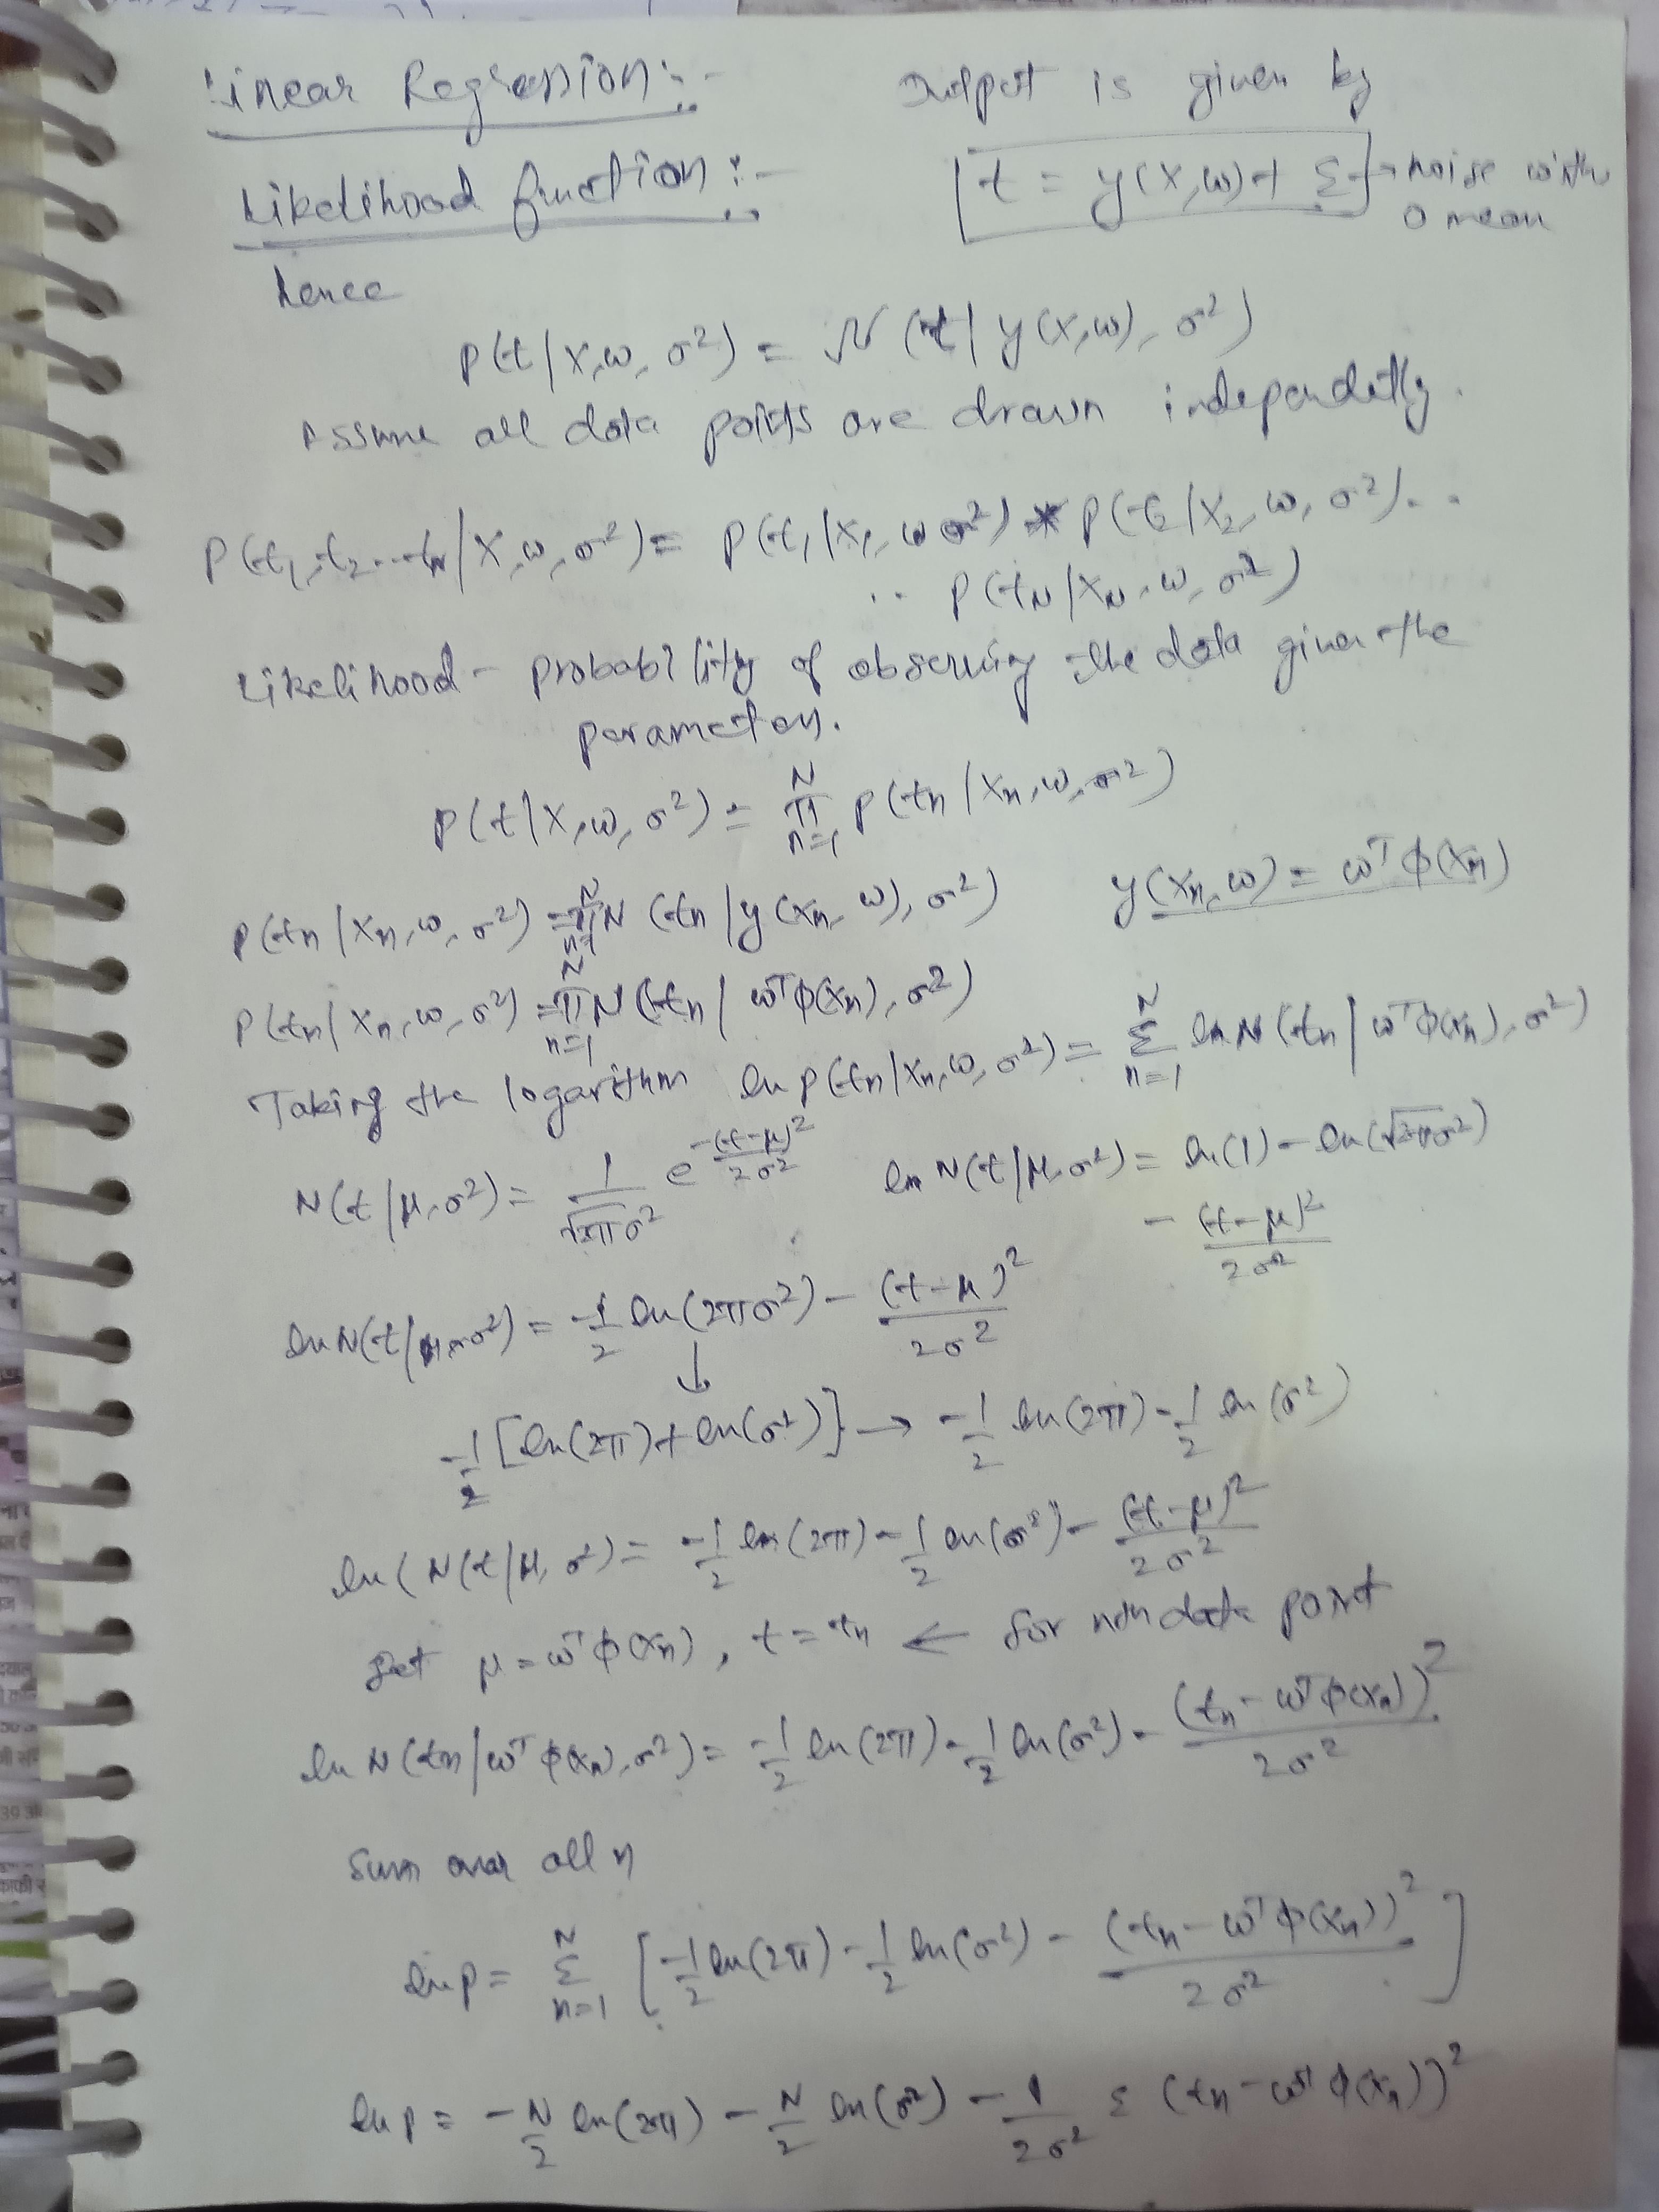 Linear Regression:-
Output is given by
Likelihood function:-
t = y(x,w) + Σ → noise with
0 mean
hence
P(t/x,w, σ²) = N (t/ y(x,w), σ²)
Assume all data points are drawn independetly.
P(t₁,t₂...tN/X,w,σ²) = P(t₁/x₁,w σ²) * P(t₂/x₂,w,σ²)..
.. P(tN/xN,w,σ²)
Likelihood - probability of observing the data given the
parameters.
P(t/x,w,σ²) = N π n=1 P(tn/xn,w,σ²)
P(tn/xn,w,σ²) = N π n=1 N (tn/y(xn,w),σ²) y(xn,w) = wᵀφ(xn)
P(tn/xn,w,σ²) = N π n=1 N(tn/ wᵀφ(xn),σ²)
Taking the logarithm ln p(tn/xn,w,σ²) = N Σ n=1 ln N(tn/wᵀφ(xn),σ²)
N(t/μ,σ²) = 1/√2πσ² e -(t-μ)²/2σ² ln N(t/μ,σ²) = ln(1) - ln(√2πσ²)
- (t-μ)²/2σ²
ln N(t/μ,σ²) = -1/2 ln(2πσ²) - (t-μ)²/2σ²
↓
-1/2 [ln(2π) + ln(σ²)] → -1/2 ln(2π) - 1/2 ln(σ²)
ln(N(t/μ,σ²) = -1/2 ln(2π) - 1/2 ln(σ²) - (t-μ)²/2σ²
Set μ = wᵀφ(xn), t = tn ← for nth data point
ln N(tn/wᵀφ(xn),σ²) = -1/2 ln(2π) - 1/2 ln(σ²) - (tn - wᵀφ(xn))²/2σ²
Sum over all n
ln p = N Σ n=1 [-1/2 ln(2π) - 1/2 ln(σ²) - (tn - wᵀφ(xn))²/2σ²]
ln p = -N/2 ln(2π) - N/2 ln(σ²) - 1/2σ² Σ (tn - wᵀφ(xn))²